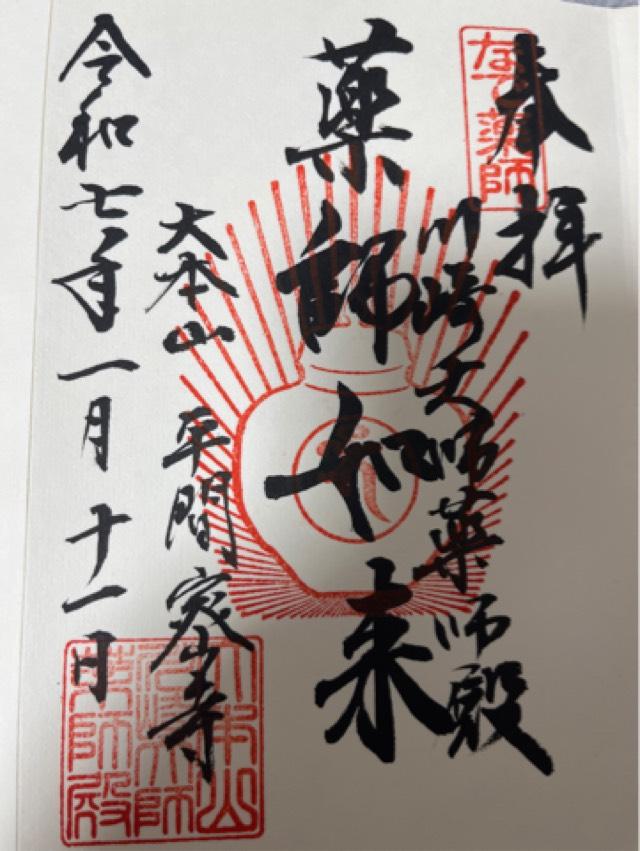 奉拝
なで薬師
川崎大師薬師殿
薬師如来
大本山 平間寺
令和七年一月十一日
大本山
川崎大師
薬師殿